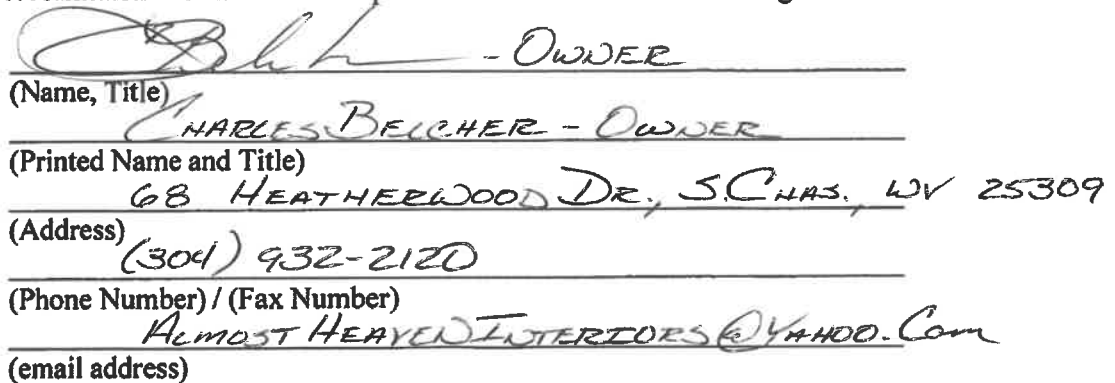 - OWNER
(Name, Title)
CHARLES BELCHER - OWNER
(Printed Name and Title)
68 HEATHERWOOD DR., S. CHAS., WV 25309
(Address)
(304) 932-2120
(Phone Number) / (Fax Number)
ALMOST HEAVEN INTERIORS@YAHOO.COM
(email address)